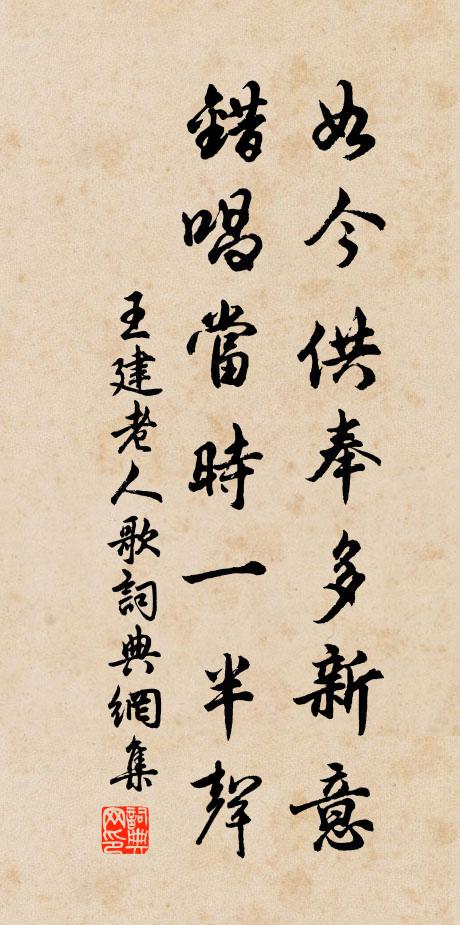 如今供奉多新意
錯唱當時一半聲
王建老人歌詞典網集
詞典網印